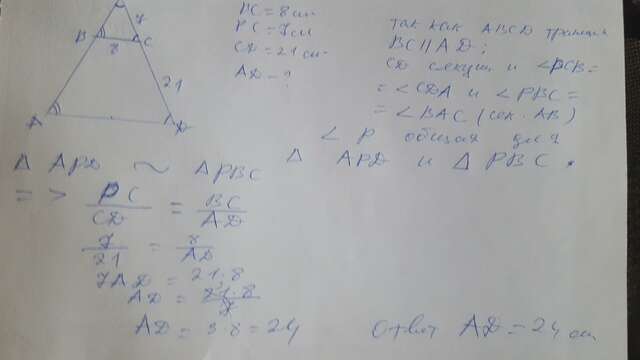 7
B 8 C
21
A D
BC = 8 см
PC = 7 см
CD = 21 см
AD - ?
так как ABCD трапеция
BC || AD;
CD секущ и ∠PCB =
= ∠CDA и ∠PBC =
= ∠BAC (сек. AB)
∠ P общая для
Δ APD и Δ PBC.
Δ APD ~ ΔPBC
=> PC/CD = BC/AD
7/21 = 8/AD
7AD = 21·8
AD = 21·8/7
AD = 3·8 = 24
Ответ AD = 24 см